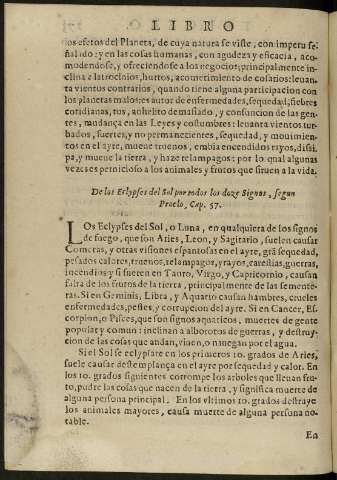 LIBRO
los efetos del Planeta, de cuya natura se viste, con impetu se-
ñalado: y en las cosas humanas, con agudeza y eficacia, aco-
modendose, y ofreciendose a los negocios; principalmente in-
clina a latrocinios, hurtos, acometimiento de cosarios: levan-
ta vientos contrarios, quando tiene alguna participacion con
los planetas malos: es autor de enfermedades, sequedad, fiebres
cotidianas, tos, anhelito demasiado, y consuncion de las gen-
tes, mudança en las Leyes y costumbres: levanta vientos tur-
bados, fuertes, y no permanecientes, sequedad, y movimien-
tos en el ayre, mueve truenos, embia encendidos rayos, dissi-
pa, y mueve la tierra, y haze relampagos: por lo qual algunas
vezes es pernicioso a los animales y frutos que sirven a la vida.
De los Eclypses del Sol por todos los doze Signos, segun
Proclo, Cap. 57.
LOs Eclypses del Sol, o Luna, en qualquiera de los signos
de fuego, que son Aries, Leon, y Sagitario, suelen causar
Cometas, y otras visiones espantosas en el ayre, grã sequedad,
pesados calores, truenos, relampagos, rayos, carestias, guerras,
incendios: y si fueren en Tauro, Virgo, y Capricornio, causan
falta de los frutos de la tierra, principalmente de las semente-
ras. Si en Geminis, Libra, y Aquario causan hambres, crueles
enfermedades, pestes, y corrupcion del ayre. Si en Cancer, Es-
corpion, o Pisces, que son signos aquaticos, muertes de gente
popular y comun: inclinan a alborotos de guerras, y destruy-
cion de las cosas que andan, viven, o navegan por el agua.
Si el Sol se eclypsare en los primeros 10. grados de Aries,
suele causar destemplança en el ayre por sequedad y calor. En
los 10. grados siguientes corrompe los arboles que llevan fru-
to, pudre las cosas que nacen de la tierra, y significa muerte de
alguna persona principal. En los vltimos 10. grados destruye
los animales mayores, causa muerte de alguna persona no-
table.
En